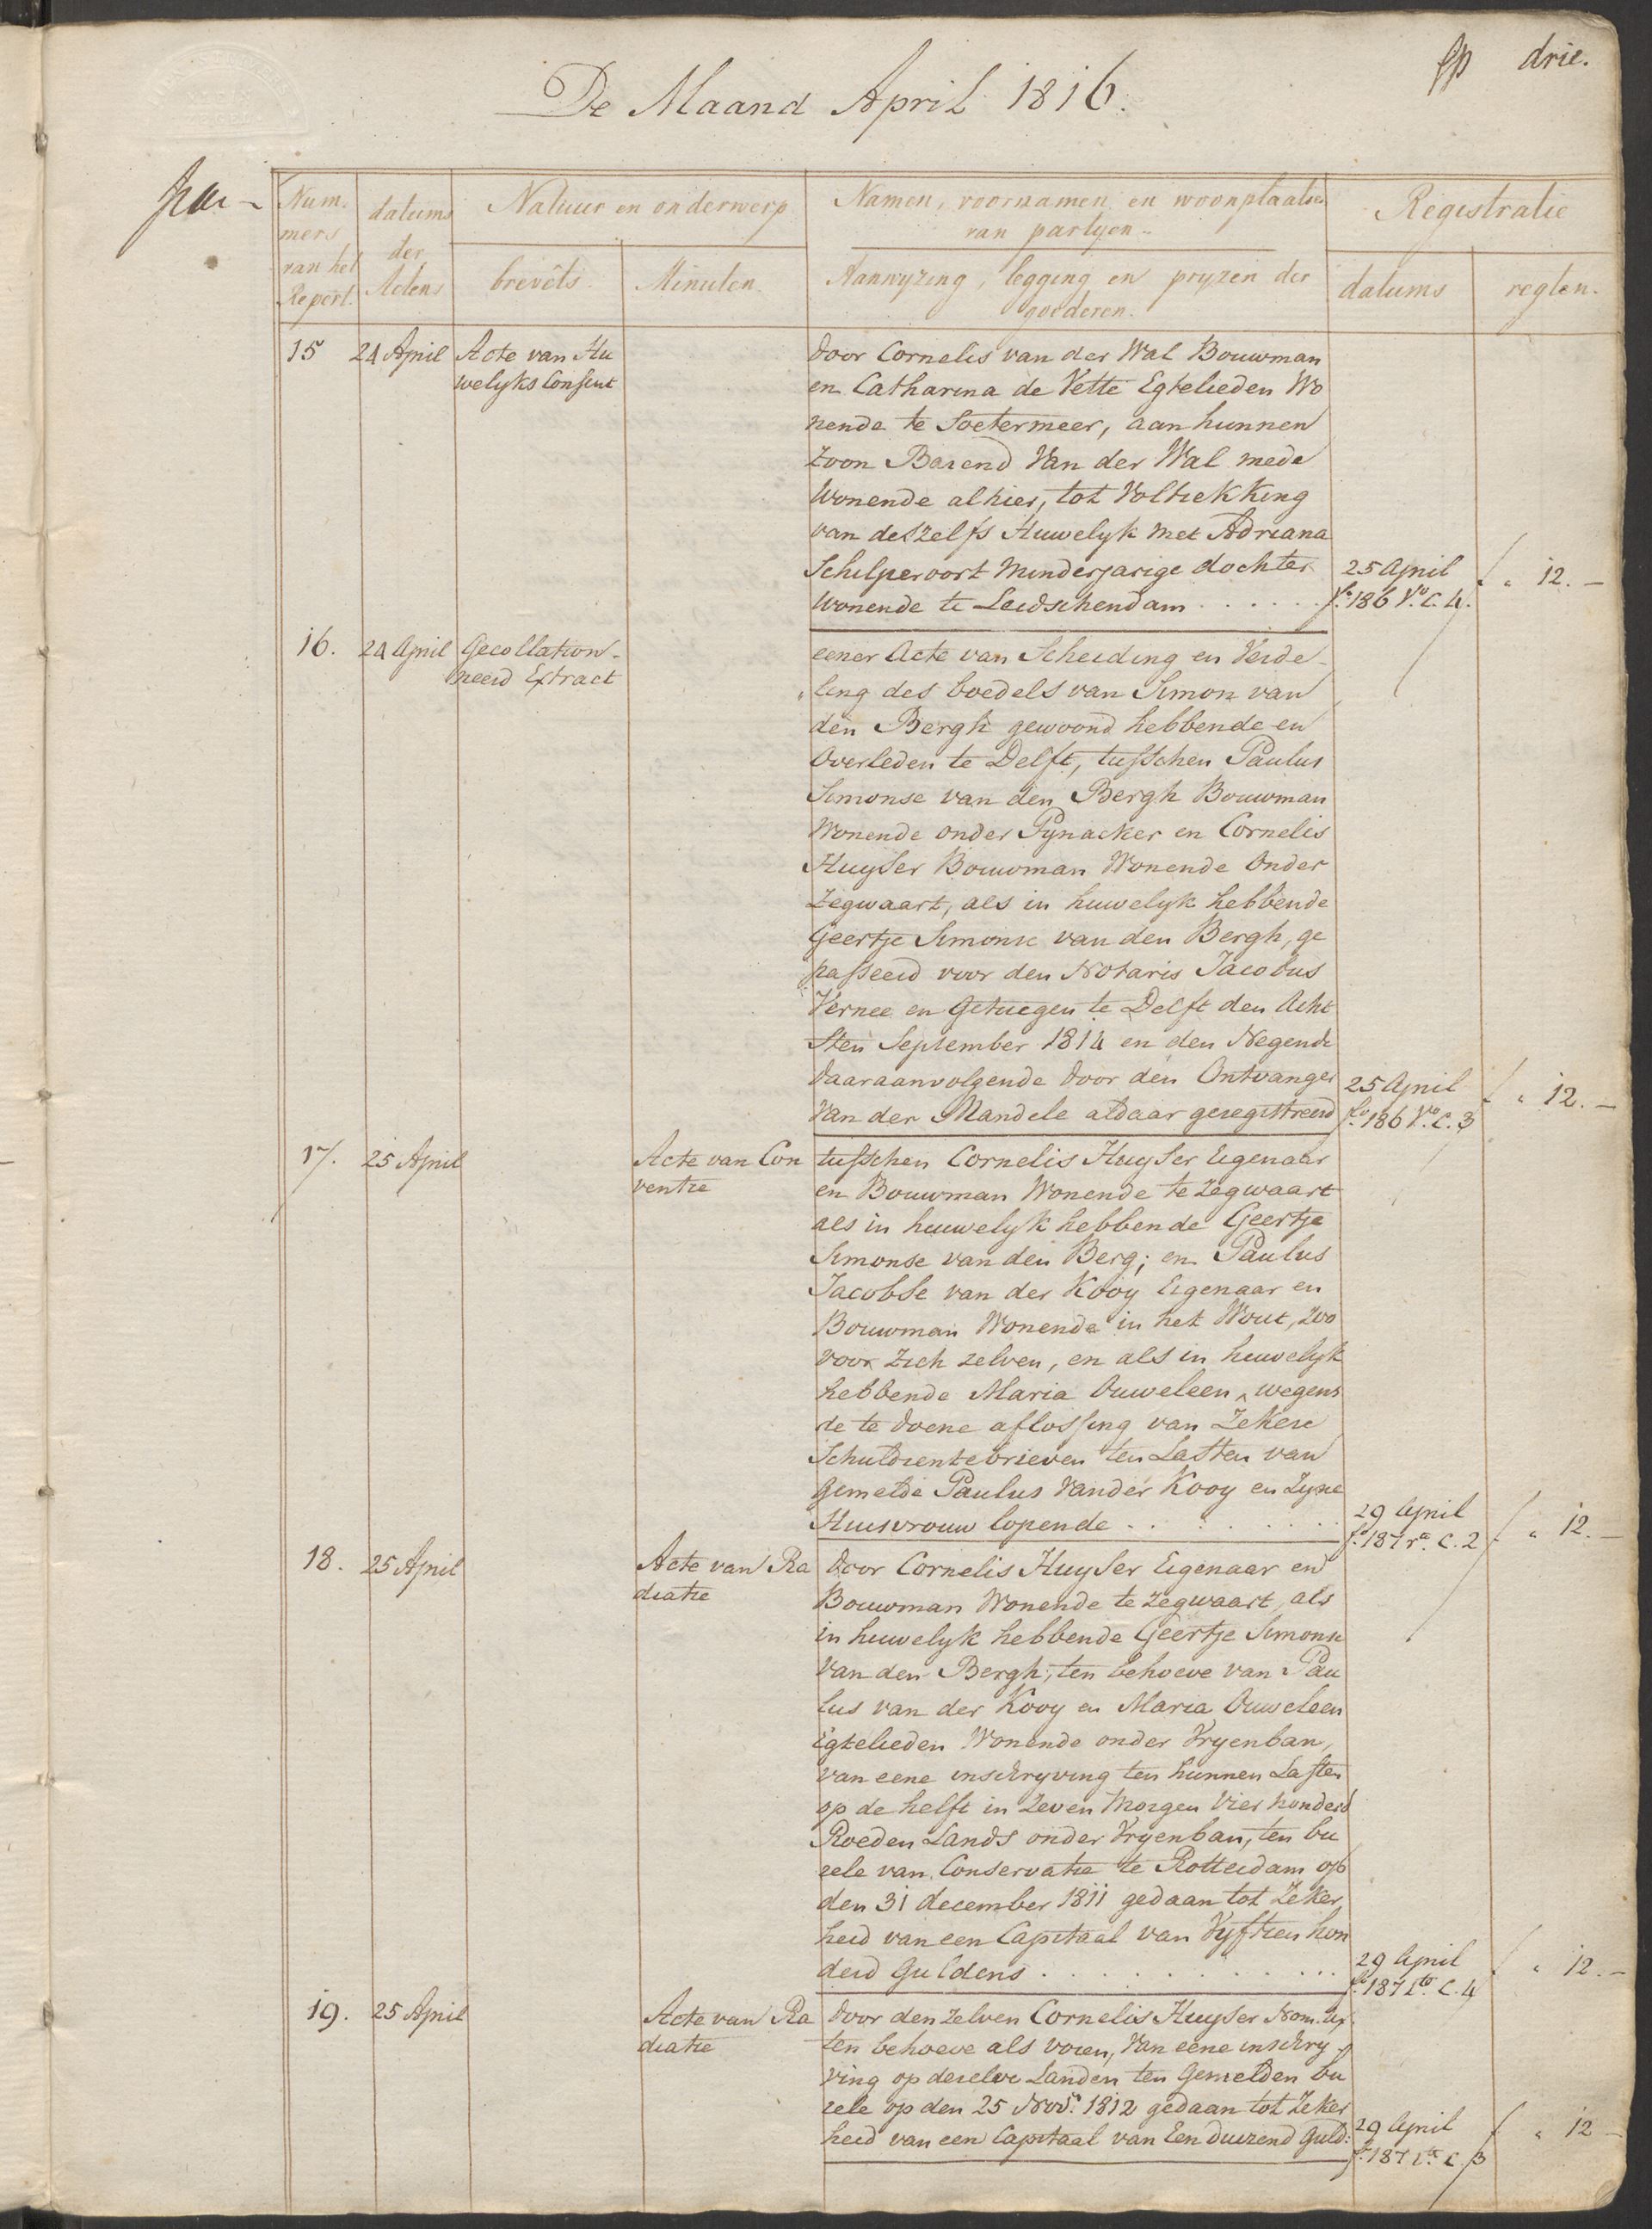 drie.
De Maand April 1816.
Num-
mers
van het
Repert.
datums
der
Actens
Natuur en onderwerp
brevêts.
Minuten.
Namen, voornamen, en woonplaatsen
van partyen.
Aanwyzing, legging en pryzen der
goederen.
Registratie
datums
regten.
15
24 April
Acte van Hu
welyks Consent
door Cornelis van der Wal Bouwman
en Catharina de Vette Egtelieden Wo
nende te Soetermeer, aan hunnen
Zoon Barend Van der Wal mede
Wonende alhier, tot Voltrekking
van deszelfs Huwelyk met Adriana
Schilpervoort Minderjarige dochter
wonende te Leidschendam . . . . . .
25 April
fo. 186 Vo. C. 4.
" 12. -
16.
24 April
Gecollation-
neerd Extract
eener Acte van Scheiding en Verde-
ling des boedels van Simon van
den Bergh gewoond hebbende en
Overleden te Delft, tusschen Paulus
Simonse van den Bergh Bouwman
Wonende onder Pynacker en Cornelis
Huyser Bouwman Wonende Onder
Zegwaart, als in huwelyk hebbende
Geertje Simonse van den Bergh, ge
passeerd voor den Notaris Jacobus
Vernee en Getuigen te Delft den Acht
sten September 1814 en den Negende
daaraanvolgende door den Ontvanger
Van der Mandele aldaar geregistreerd
25 April
fo. 186 Vo. C. 3
" 12. -
17.
25 April
Acte van Con
ventie
tusschen Cornelis Huyser Eigenaar
en Bouwman Wonende te Zegwaart
als in huwelyk hebbende Geertje
Simonse van den Berg; en Paulus
Jacobse van der Kooy Eigenaar en
Bouwman Wonende in het Wout, zoo
voor zich zelven, en als in huwelyk
hebbende Maria Ouweleen ^ wegens
de te doene aflossing van Zekere
Schuldrentebrieven ten Lasten van
Gemelde Paulus Van der Kooy en Zyne
Huisvrouw lopende . . . . . . . .
29 April
fo. 187 ro. C. 2
" 12. -
18.
25 April
Acte van Ra
diatie
door Cornelis Huyser Eigenaar en
Bouwman Wonende te Zegwaart, als
in huwelyk hebbende Geertje Simonse
Van den Bergh; ten behoeve van Pau
lus van der Kooy en Maria Ouweleen
Egtelieden Wonende onder Vryenban,
van eene inschryving ten hunnen Lasten
op de helft in Zeven Morgen Vier honderd
Roeden Lands onder Vryenban, ten bu
rele van Conservatie te Rotterdam op
den 31 december 1811 gedaan tot Zeker
heid van een Capitaal van Vyftien hon
derd Guldens . . . . . . . . . . .
29 April
fo. 187 C. 4
" 12. -
19.
25 April
Acte van Ra
diatie
door den zelven Cornelis Huyser Nom. Ux.
ten behoeve als voren, Van eene inschry-
ving op dezelve Landen ten Gemelden bu
rele op den 25 Novr. 1812 gedaan tot Zeker
heid van een Capitaal van Een duizend Guld:
29 April
fo. 187 C. 3
" 12 -